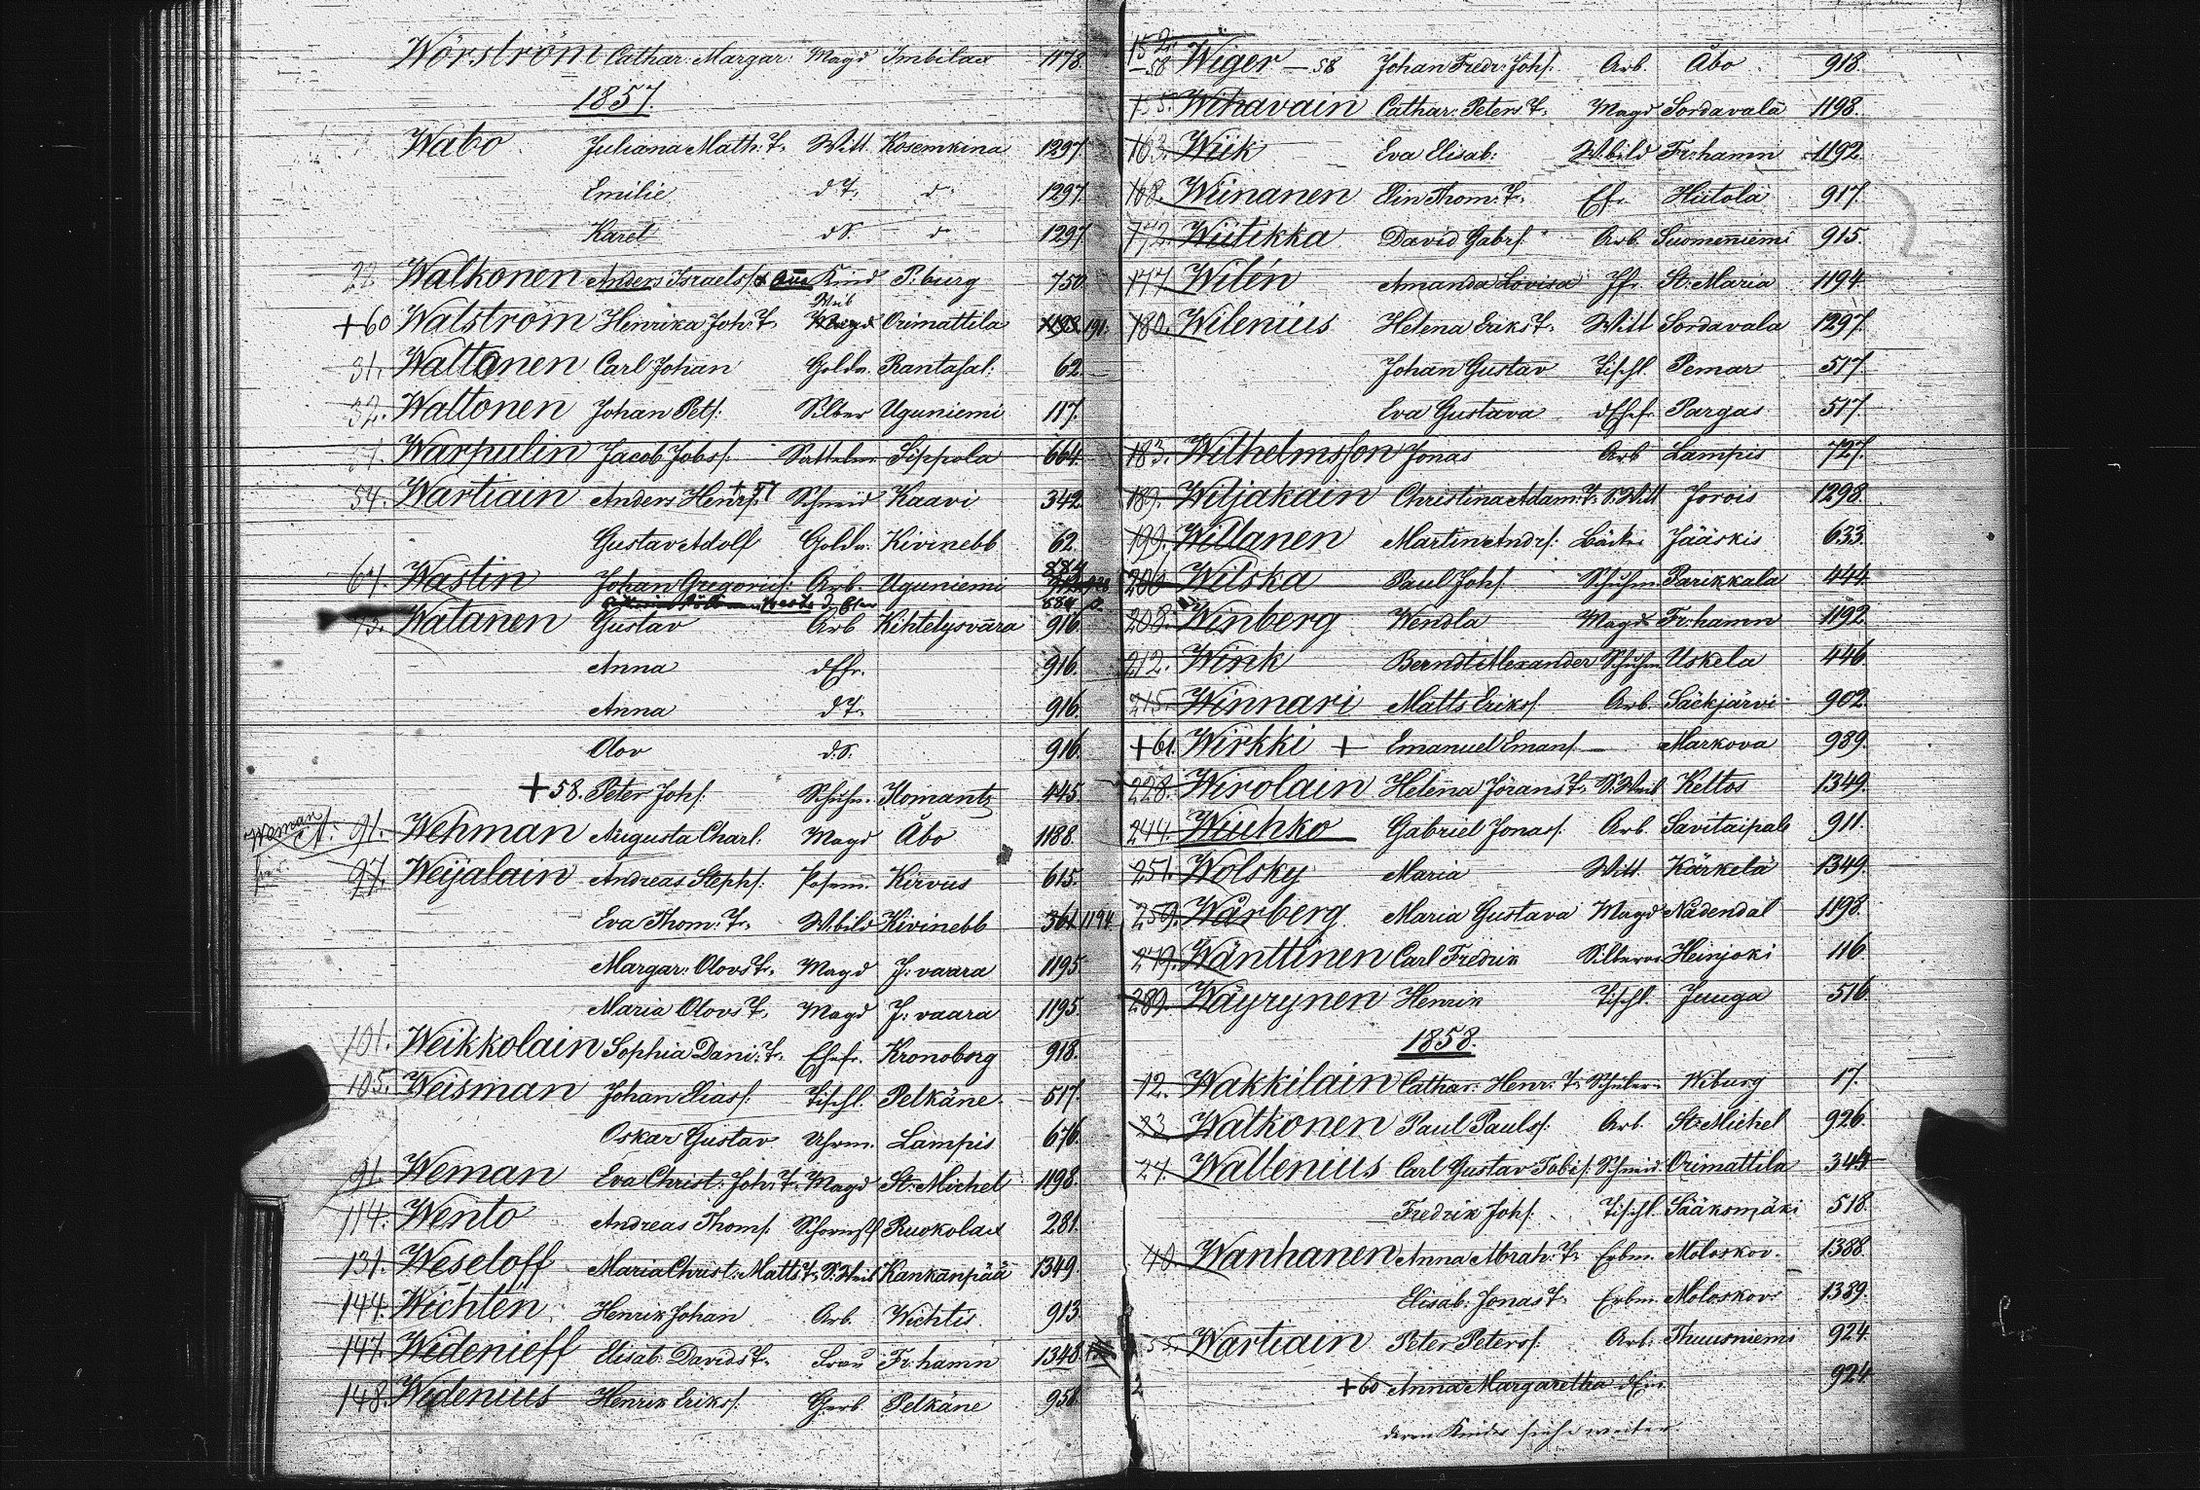 Wörström Cathar: Margar: Magd Imbilax 1178.
1857.
Wabo Juliana Math: T. Witt. Kosemkina 1297.
Emilie d T. d: 1297.
Karel d S. d 1297.
22 Walkonen Anders Israels Kind P:burg 750
+60 Walström Henrika Joh: T. Weib Orimattila 191.
31. Waltonen Carl Johan Golda. Rantasal: 62.
32. Waltonen Johan Pets: Silber Uguniemi 117.
Warpulin Jacob Jobs: Sattelm. Sippola 664.
54. Wartiain Anders Henrs: +57 Schmid Kaavi 342.
Gustav Adolf Golda. Kivinebb 62.
67. Wastin Johan Gregoriis: Arb. Uguniemi 884
73. Watanen Gustav Arb. Kihtelysvaara 916.
Anna d Ehfr. 916.
Anna d T. 916.
Olov d.S. 916.
+58. Peter Johs: Schuhm. Ilomants 445.
Weman
91. Wehman Augusta Charl: Magd Åbo 1188.
97. Weijalain Andreas Stephs: Posam. Kirvus 615.
Eva Thom: T. Wbild Kivinebb 361 1194.
Margar: Olovs T. Magd J: vaara 1195.
Maria Olovs T. Magd J: vaara 1195.
101. Weikkolain Sophia Dani: T. Ehefr. Kronoborg 918.
105. Weisman Johan Elias: Tischl. Pelkäne 517.
Oskar Gustav Uhrm. Lampis 676.
91. Weman Eva Christ: Joh: T. Magd St: Michel 1198.
114. Wento Andreas Thoms: Schornstf Ruokolax 281.
131. Weseloff Maria Christ: Matts T. S: Weib Kankanpää 1349.
144. Wichtén Henrik Johan Arb. Wichtis 913.
147. Widenieff Elisab: Davids T. Frau Fr: hamn 1348.
148. Widenius Henrik Eriks: Gerb Pelkäne 958.
152.
-58 Wiger -58 Johan Fredr: Johs: Arb. Åbo 918.
155. Wihavain Cathar: Peters T. Magd Sordavala 1198.
163. Wiik Eva Elisab: Wbild Fr: hamn 1192.
168. Wiinanen Elin Thom: T. Ef. Hiitola 917.
172. Wiitikka David Gabrs: Arb. Suomenniemi 915.
177. Wilén Amanda Lovisa Jfr. St: Maria 1194.
180. Wilenius Helena Eriks T. Witt Sordavala 1297.
Johan Gustav Tischl Pemar 517.
Eva Gustava d Ehefr. Pargas 517.
183. Wilhelmsson Jonas Arb Lampis 727.
189. Wiljakain Christina Adam: T. S: Witt Jorois 1298.
199. Willanen Martin Andrs: Bäcker Jääskis 633.
200 Wilska Paul Johs: Schuhm. Parikkala 444.
208. Winberg Wendla Magd Fr: hamn 1192.
212. Wink Berndt Alexander Schuhm. Uskela 446.
215. Winnari Matts Eriks: Arb. Säckjärvi 902.
+61. Wirkki + Emanuel Emans: — Markova 989.
228. Wirolain Helena Jörans T. S: Weib Keltos 1349.
244. Wiuhko Gabriel Jonas: Arb. Savitaipale 911.
251. Wolsky Maria Witt. Kärkelä 1349.
259. Wårberg. Maria Gustava Magd Nådendal 1198.
279. Wänttinen Carl Fredrik Silberar Heinjoki 116.
289. Wäyrynen Henrik Tischl. Juuga 516.
1858.
12. Wakkilain Cathar: Henr: T. Schülern Wiburg 17.
23. Walkonen Paul Pauls: Arb. St: Michel 926.
27. Wallenius Carl Gustav Tobi: Schmid Orimattila 349
Fredrik Johs: Tischl. Sääksmäki 518.
40. Wanhanen Anna Abrah: T. Erbm. Moloskov. 1388.
Elisab: Jonas T. Erbm. Moloskov 1389.
55. Wartiain Peter Peters: Arb. Thuusniemi 924.
+60 Anna Margaretha d Efr. 924
deren Kinder siehe weiter